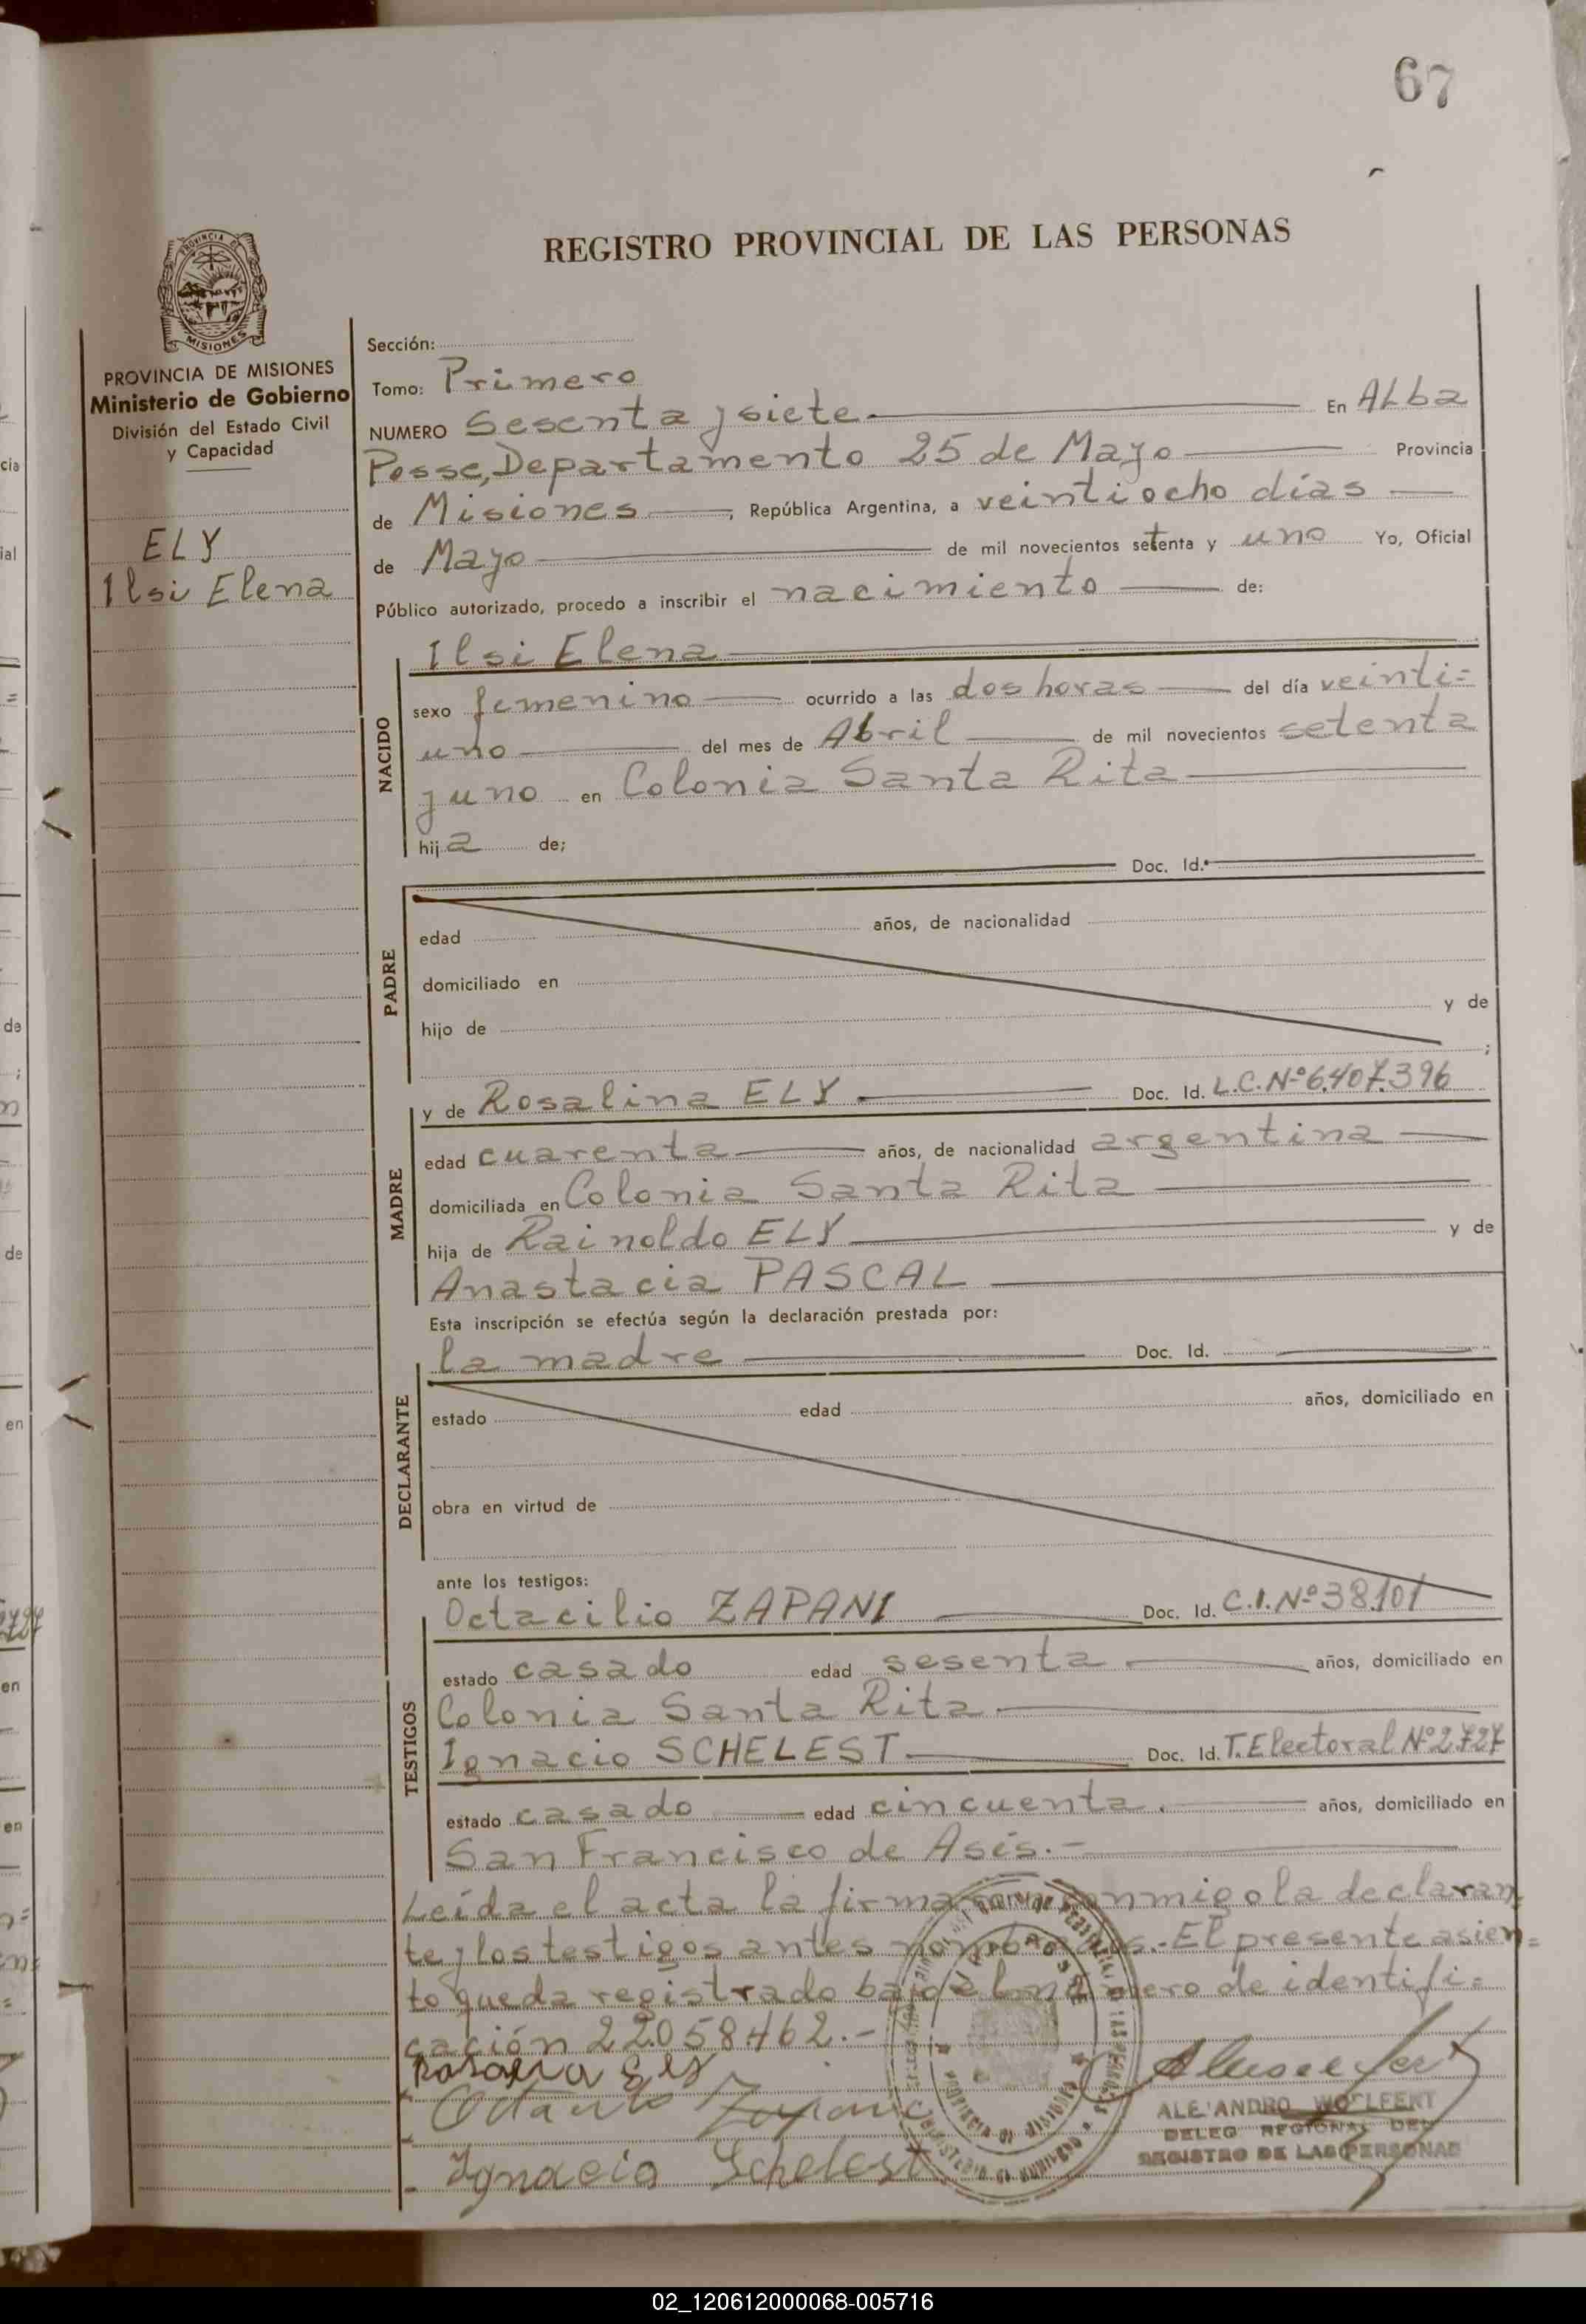 67
REGISTRO PROVINCIAL DE LAS PERSONAS
PROVINCIA DE MISIONES
Ministerio de Gobierno
División del Estado Civil
y Capacidad
ELY
Ilsi Elena
Sección:
Tomo: Primero
NUMERO Sesenta y siete En Alba
Posse, Departamento 25 de Mayo Provincia
de Misiones, República Argentina, a veintiocho días
de Mayo de mil novecientos setenta y uno Yo, Oficial
Público autorizado, procedo a inscribir el nacimiento de:
NACIDO
Ilsi Elena
sexo femenino ocurrido a las dos horas del día veinti=
uno del mes de Abril de mil novecientos setenta
y uno en Colonia Santa Rita
hija de;
PADRE
Doc. Id.
edad años, de nacionalidad
domiciliado en
hijo de y de
;
MADRE
y de Rosalina ELY Doc. Id. L.C.Nº6.407.396
edad cuarenta años, de nacionalidad argentina
domiciliada en Colonia Santa Rita
hija de Rainoldo ELY y de
Anastacia PASCAL
Esta inscripción se efectúa según la declaración prestada por:
DECLARANTE
la madre Doc. Id.
estado edad años, domiciliado en
obra en virtud de
ante los testigos:
TESTIGOS
Octacilio ZAPANI Doc. Id. C.I.Nº38.101
estado casado edad sesenta años, domiciliado en
Colonia Santa Rita
Ignacio SCHELEST Doc. Id. T.Electoral Nº2727
estado casado edad cincuenta. años, domiciliado en
San Francisco de Asís.-
Leída el acta la firman conmigo la declaran=
te y los testigos antes nombrados.-El presente asien=
to queda registrado bajo el número de identifi=
cación 22.058.462.-
Ely
Ignacio Schelest
ALEJANDRO WOLFEERT
DELEG REGIONAL DEL
REGISTRO DE LAS PERSONAS
02_120612000068-005716